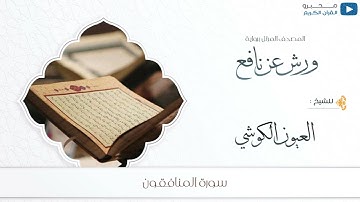 محبرو
القرآن الكريم
المصحف المنزل برواية
ورش عن نافع
للشيخ :
العيون الكوشي
سورة المنافقون